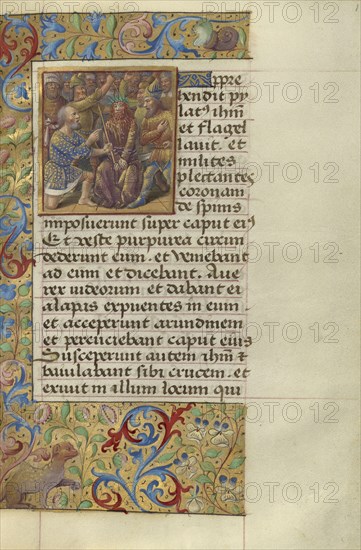 Appre
hendit py
lat᷒ ihm
et flagel
lauit. et
milites
plectantes
coronam
de spinis
imposuerunt super caput ei᷒
Et veste purpurea circum
dederunt eum. et veniebant
ad eum et dicebant. Aue
rex iudeorum et dabant ei
alapas expuentes in eum
et acceperunt arundinem
et percuciebant caput eius
Susceperunt autem ihm &
baiulabant sibi crucem. et
exiuit in illum locum qui